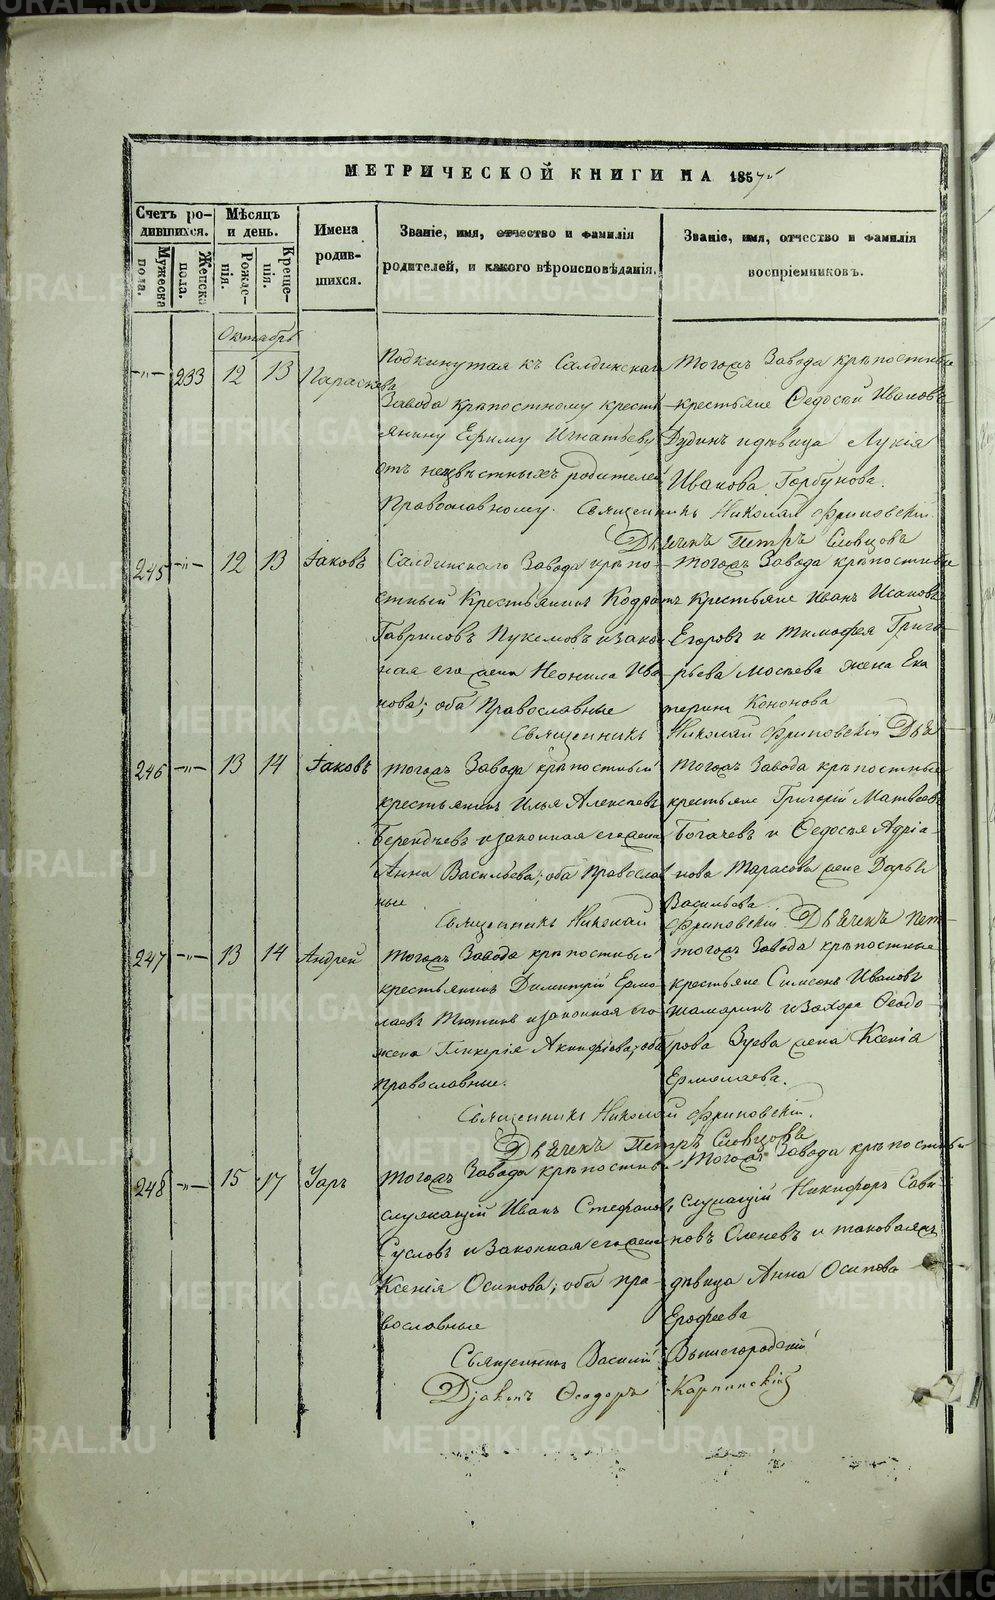 МЕТРИЧЕСКОЙ КНИГИ НА 1857й
Счетъ ро-
дившихся.
Мужеска
пола.
Женска
пола.
Мѣсяцъ
и день.
Рожде-
нія.
Креще-
нія.
Имена
родив-
шихся.
Званіе, имя, отчество и фамилія
родителей, и какого вѣроисповѣданія.
Званіе, имя, отчество и фамилія
воспріемниковъ.
Октябрь
233 12 13 Параскева
Подкинутая къ Салдинскаго
Завода крѣпостному кресть-
янину Ефиму Игнатьеву
отъ неизвѣстныхъ родителей
Православному.
Тогожъ Завода крѣпостные
крестьяне Ѳедосей Ивановъ
Дудинъ и дѣвица Лукія
Иванова Горбунова.
Священникъ Николай Фриновскій.
Дьячекъ Петръ Словцовъ
245 12 13 Іаковъ
Салдинскаго Завода крѣпо-
стный Крестьянинъ Кодратъ
Гавриловъ Пукемовъ и закон
ная его жена Неонила Ива
нова; оба Православные
Тогожъ Завода крѣпостные
Крестьяне Иванъ Исаковъ
Егоровъ и Тимофея Григо-
рьева Мосѣева жена Ека
терина Кононова
Священникъ Николай Фриновскій Дьяч
246 13 14 Іаковъ
Тогожъ Завода крѣпостный
крестьянинъ Илья Алексѣевъ
Берендѣевъ и законная его жена
Анна Васильева; оба Православ
ные
Тогожъ Завода крѣпостные
крестьяне Григорій Матвѣевъ
Богачевъ и Ѳедосѣя Адріа-
нова Тарасова жена Дарья
Васильева
Священникъ Николай Фриновскій Дьячекъ Пет-
247 13 14 Андрей
Тогожъ Завода крѣпостный
крестьянинъ Димитрій Ермо
лаевъ Тютинъ и законная его
жена Гликерія Акинфіева; оба
Православные.
Тогожъ Завода крѣпостные
крестьяне Симеонъ Ивановъ
Шамаринъ и Захара Ѳеодо-
рова Зуева жена Ксенія
Ермолаева.
Священникъ Николай Фриновскій.
Дьячекъ Петръ Словцовъ
248 15 17 Уаръ
Тогожъ Завода крѣпостный
служащій Иванъ Стефановъ
Сусловъ и Законная его жена
Ксенія Осипова; оба пра-
вославные
Тогожъ Завода крѣпостный
служащій Никифоръ Сави
новъ Оленевъ и таковаяжъ
дѣвица Анна Осипова
Ерофеева
Священникъ Василій Вышегородскій
Діаконъ Ѳеодоръ Карпинскій
METRIKI.GASO-URAL.RU